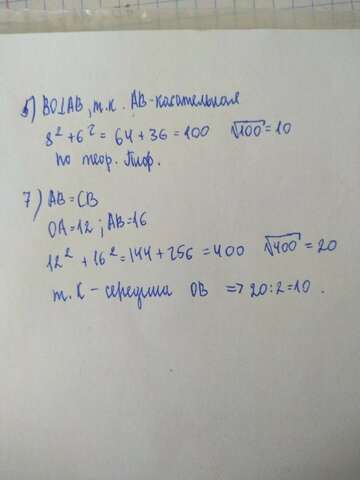 6) BO⊥AB, т.к. AB-касательная
8² + 6² = 64 + 36 = 100 √100 = 10
По теор. Пиф.
7) AB = CB
OA = 12 ; AB = 16
12² + 16² = 144 + 256 = 400 √400 = 20
т. K - середина OB => 20:2=10 .